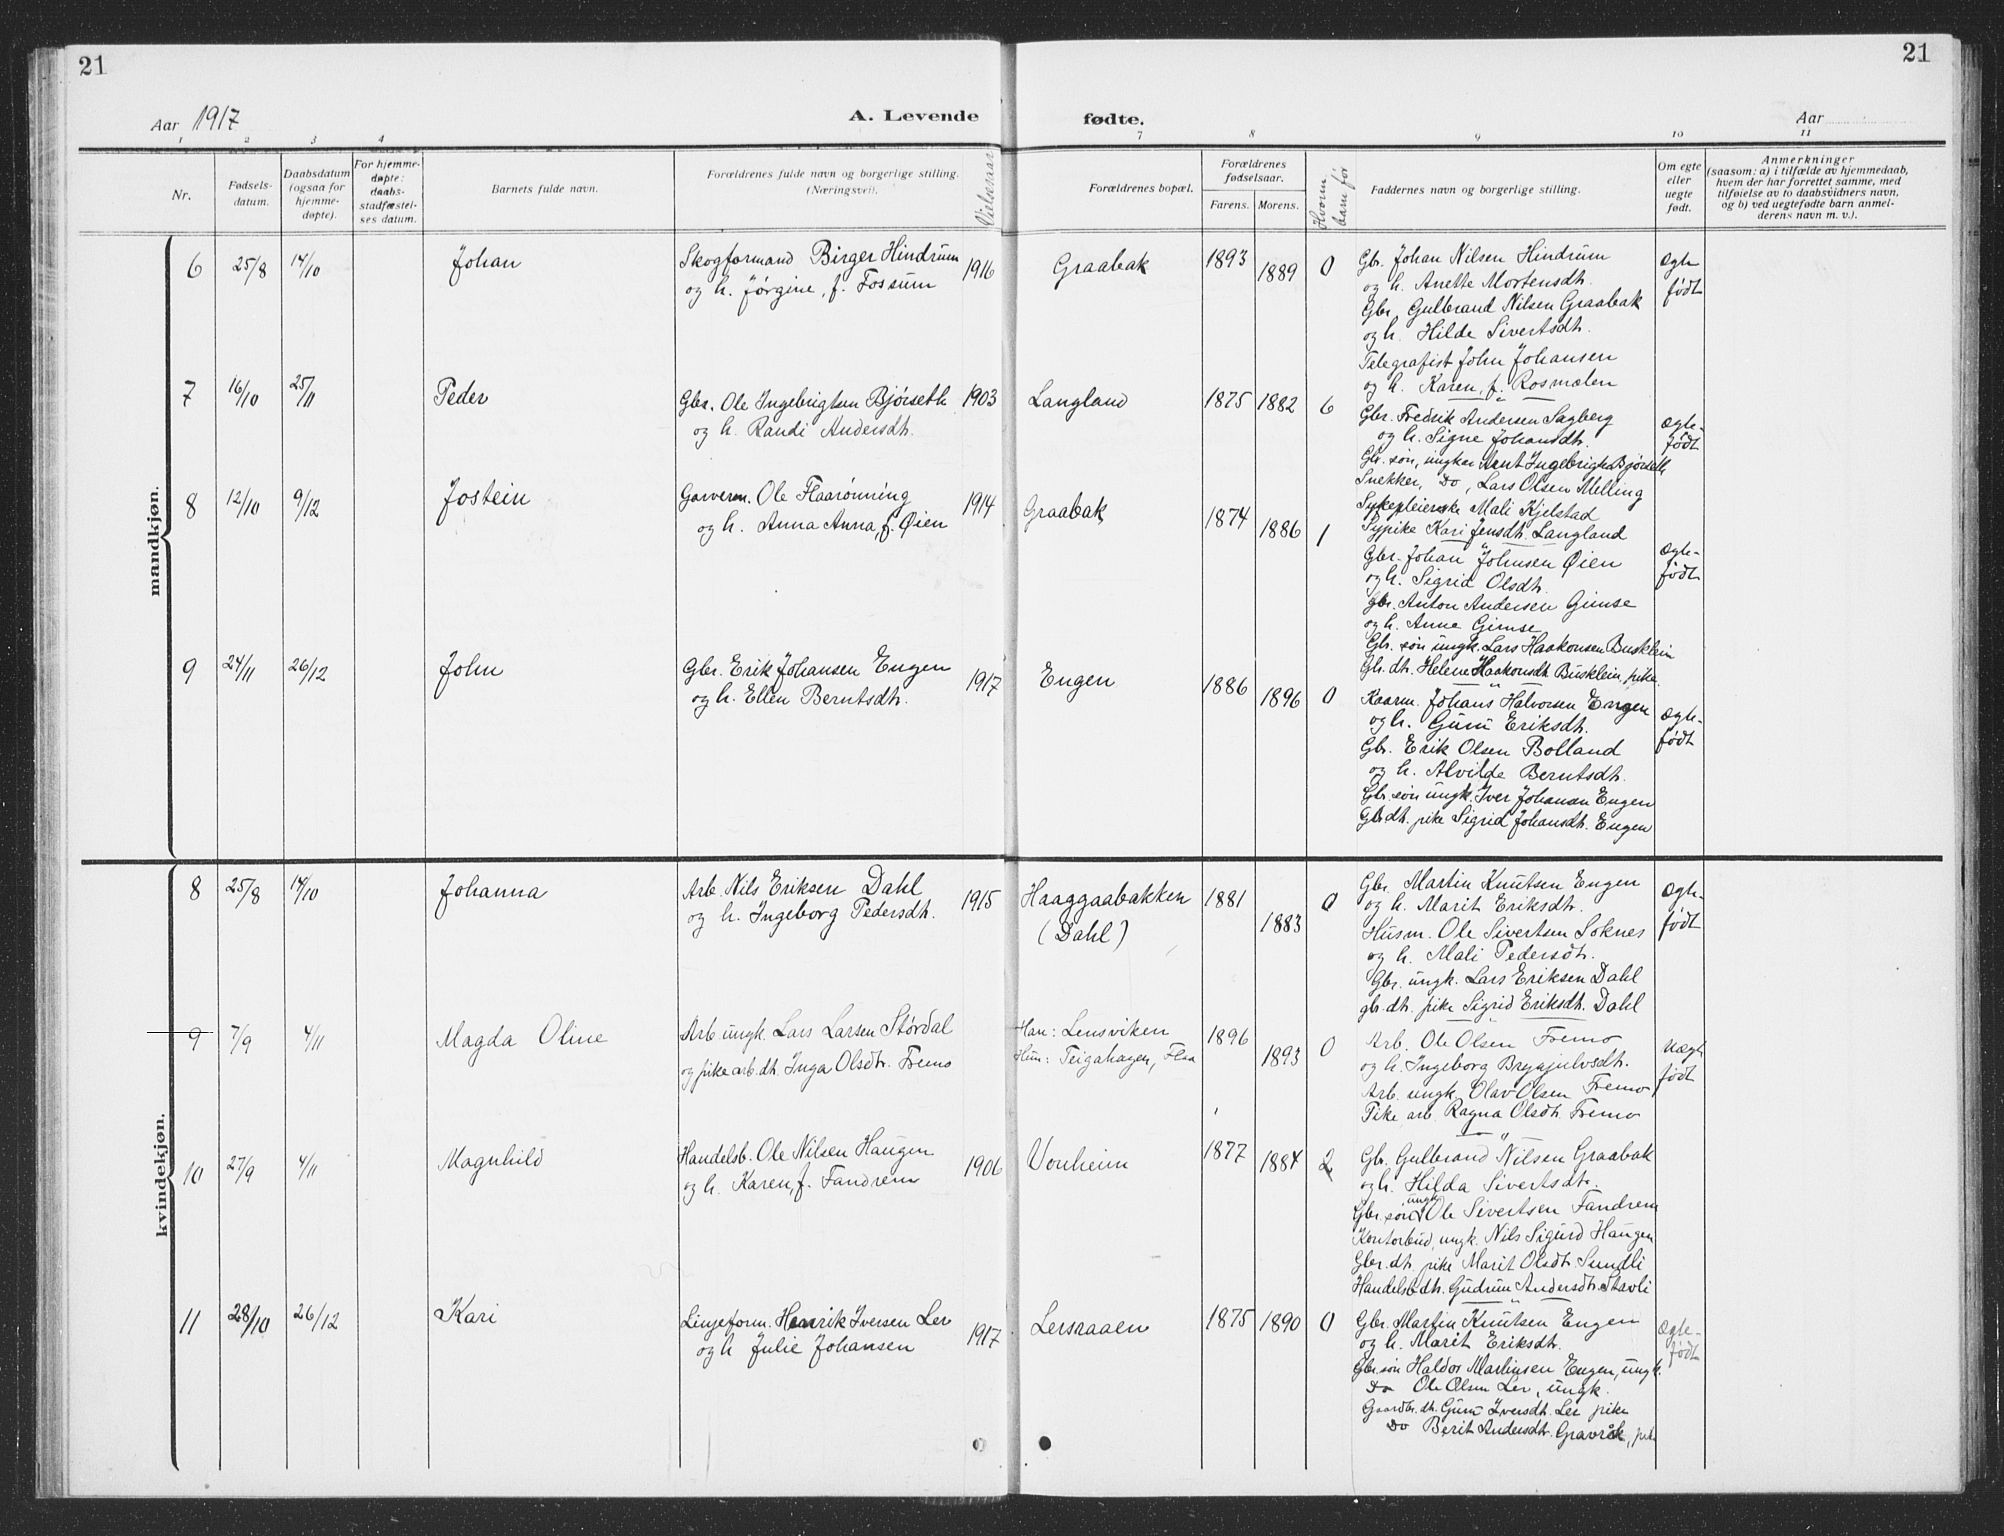 21
21
Aar 1917
A. Levende
fødte.
Aar
1 2 3 4 5 6 7 8 9 10 11
Nr.
Fødsels-
datum.
Daabsdatum
(ogsaa for
hjemme-
døpte).
For hjemme-
døpte:
daabs-
stadfæstel-
ses datum.
Barnets fulde navn.
Forældrenes fulde navn og borgerlige stilling.
(Næringsvei).
Vielsesaar
Forældrenes bopæl.
Forældrenes
fødselsaar.
Farens. Morens.
Hvorm.
barn før
Faddernes navn og borgerlige stilling.
Om egte
eller
uegte
født.
Anmerkninger
(saasom: a) i tilfælde av hjemmedaab,
hvem der har forrettet samme, med
tilføielse av to daabsvidners navn,
og b) ved uegtefødte barn anmel-
derens navn m. v.).
mandkjøn.
6 25/8 14/10 Johan
Skogformand Birger Hindrum
og h. Jørgine, f. Fossum
1916 Graabak 1893 1889 0
Gb. Johan Nilsen Hindrum
og h. Anette Mortensdt.
Gbr. Gulbrand Nilsen Graabak
og h. Hilde Sivertsdt.
Telegrafist John Johansen
og h. Karen, f. Rosmælen
Ægte
født
7 16/10 25/11 Peder
Gbr. Ole Ingebrigtsen Bjørseth
og h. Randi Andersdt.
1903 Langland 1875 1882 6
Gbr. Fredrik Andersen Sagberg
og h. Signe Johansdt.
Gbr. søn, ungkar Arnt Ingebrigts Bjørseth
Snekker, Do, Lars Olsen Melling
Sykepleierske Mali Kjelstad
Sypike Kari Jensdt. Langland
Ægte-
født
8 12/10 9/12 Jostein
Garverm. Ole Flaarønning
og h. Anna Anna, f. Øien
1914 Graabak 1874 1886 1
Gbr. Johan Johnsen Øien
og h. Sigrid Olsdt.
gbr. Anton Andersen Gimse
og h. Anne Gimse
Gbr. søn ungk. Lars Haakonsen Busklein
Gb. dt. Helene Haakonsdt. Busklein, pike.
Ægte-
født
9 24/11 26/12 John
Gbr. Erik Johansen Engen
og h. Ellen Berntsdt.
1917 Engen 1886 1896 0
Kaarm. Johans Halvorsen Engen
og h. Guru Eriksdt.
Gbr. Erik Olsen Bolland
og h. Alvilde Berntsdt.
Gbr. søn ungk. Iver Johansen Engen
Gb dt. pike Sigrid Johansdt. Engen
Ægte-
født
kvindekjøn.
8 25/8 14/10 Johanna
Arb. Nils Eriksen Dahl
og h. Ingeborg Pedersdt.
1915 Haaggaabakken
(Dahl)
1881 1883 0
Gbr. Martin Knutsen Engen
og h. Marit Eriksdt.
Husm. Ole Sivertsen Soknes
og h. Mali Pedersdt.
Gbr. ungk. Lars Eriksen Dahl
gb. dt. pike Sigrid Eriksdt. Dahl
Ægte-
født
9 7/9 4/11 Magda Oline
Arb. ungk. Lars Larsen Størdal
og pike arb. dt. Inga Olsdt. Fremo
Han: Lensviken
Hun: Teigahagen, Flaa
1896 1893 0
Arb. Ole Olsen Fremo
og h. Ingeborg Brynjulvsdt.
Arb. ungk. Olav Olsen Fremo
Pike arb. Ragna Olsdt. Fremo
Uægte
født
10 27/9 4/11 Magnhild
Handelsb. Ole Nilsen Haugen
og h. Karen, f. Fandrem
1906 Vonheim 1877 1884 2
Gb. Gulbrand Nilsen Graabak
og h. Hilda Sivertsdt.
Gbr. søn ungk Ole Sivertsen Fandrem
Kontorbud, ungk. Nils Sigurd Haugen
Gbr. dt. pike Marit Olsdt. Sundli
Handelsb dt. Gudrun Andersdt. Stavli
11 28/10 26/12 Kari
Linjeform. Henrik Iversen Ler
og h Julie Johansen
1917 Lersraaen 1875 1890 0
Gbr. Martin Knutsen Engen
og h. Marit Eriksdt.
Gbr. søn Haldor Martinsen Engen, ungk.
Do Ole Olsen Ler, ungk.
Gaardbr. dt. Guru Iversdt. Ler pike
Do Berit Andersdt. Gravråk, pike
Ægte-
født